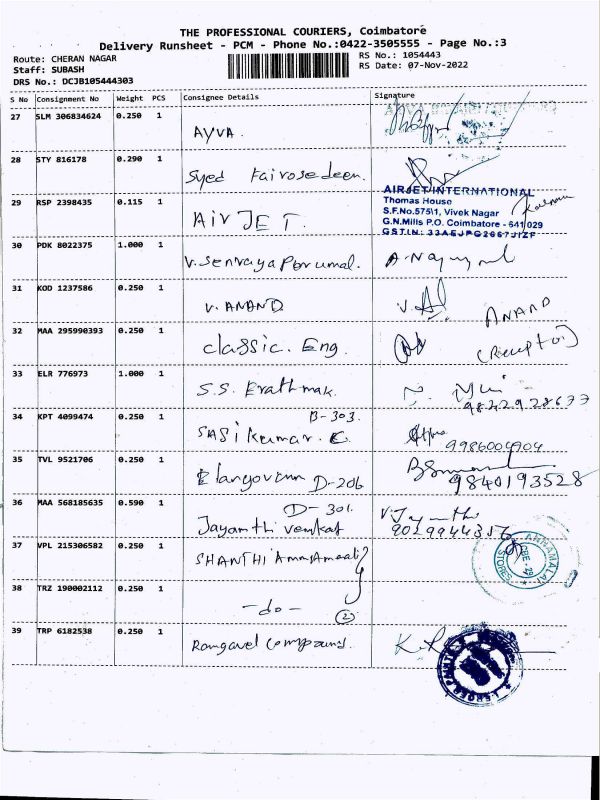 THE PROFESSIONAL COURIERS, Coimbatore
Delivery Runsheet - PCM - Phone No.:0422-3505555 - Page No.:3
Route: CHERAN NAGAR
RS No.: 1054443
Staff: SUBASH
RS Date: 07-Nov-2022
DRS No.: DCJB105444303
S No Consignment No Weight PCS Consignee Details Signature
27 SLM 306834624 0.250 1 AYVA.
28 STY 816178 0.290 1 Syed Fairosedeen.
29 RSP 2398435 0.115 1 AIR JET.
AIRJET INTERNATIONAL
Thomas House
S.F.No.575\1, Vivek Nagar
G.N.Mills P.O. Coimbatore - 641 029
GSTIN: 33AEJPG2667J1ZF
30 PDK 8022375 1.000 1 V.Senrayaperumal.
31 KOD 1237586 0.250 1 V. ANAND
ANAND
32 MAA 295990393 0.250 1 classic. Eng.
(Receptor)
33 ELR 776973 1.000 1 S.S. Erathmak.
9842928633
34 KPT 4099474 0.250 1 SASikumar. C B-303.
9986004904
35 TVL 9521706 0.250 1 Elangovan D-206
9840193528
36 MAA 568185635 0.590 1 D-301.
Jayanthi venkat V.Jayanthi
9029944356
37 VPL 215306582 0.250 1 SHANTHI
ANNAMALAI STORES
38 TRZ 190002112 0.250 1 -do- (2)
39 TRP 6182538 0.250 1 Rangavel Compounds.